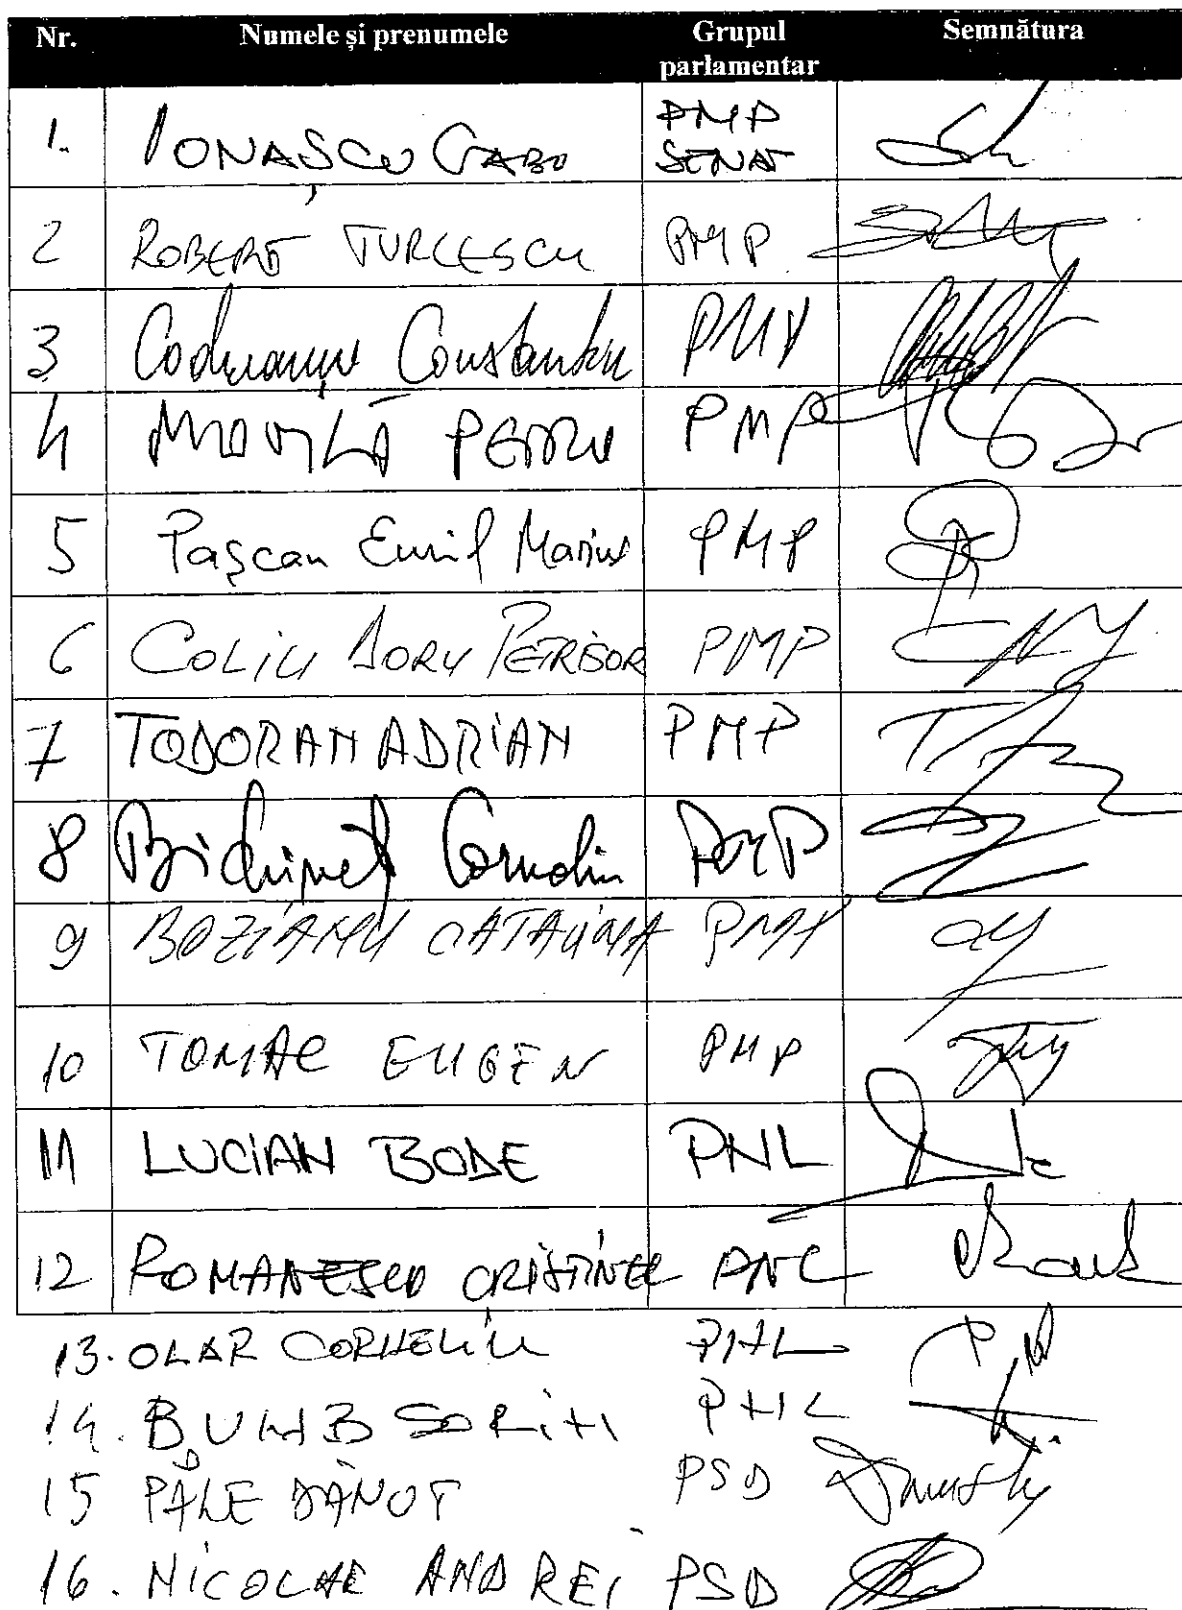 Nr. Numele și prenumele Grupul parlamentar Semnătura
1. IONAȘCU GABI PMP SENAT
2 ROBERT TURCESCU PMP
3 Codreanu Constantin PMP
4 MOVILĂ PETRU PMP
5 Pașcan Emil Marius PMP
6 COLIU DORU PETRISOR PMP
7 TODORAN ADRIAN PMP
8 Bichineț Corneliu PMP
9 BOZIANU CATALINA PMP
10 TOMAC EUGEN PMP
11 LUCIAN BODE PNL
12 ROMANESCU CRISTINEL PNL
13. OLAR CORNELIU PNL
14. BUMB SORIN PNL
15 PÂLE DĂNUȚ PSD
16. NICOLAE ANDREI PSD